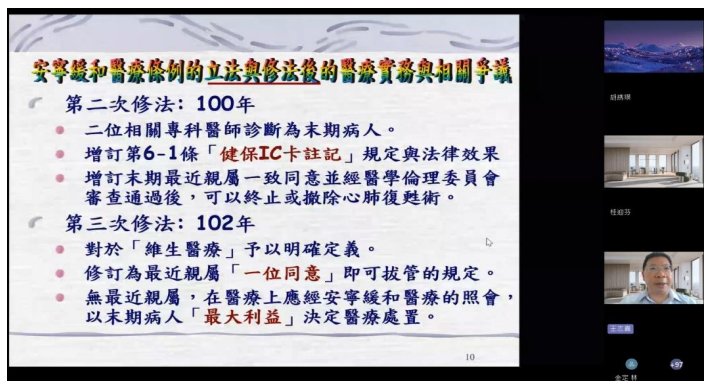 安寧緩和醫療條例的立法與修法後的醫療實務與相關爭議
第二次修法: 100年
二位相關專科醫師診斷為末期病人。
增訂第6-1條「健保IC卡註記」規定與法律效果
增訂末期最近親屬一致同意並經醫學倫理委員會
審查通過後，可以終止或撤除心肺復甦術。
第三次修法: 102年
對於「維生醫療」予以明確定義。
修訂為最近親屬「一位同意」即可拔管的規定。
無最近親屬，在醫療上應經安寧緩和醫療的照會，
以末期病人「最大利益」決定醫療處置。
10
+97
金定 林